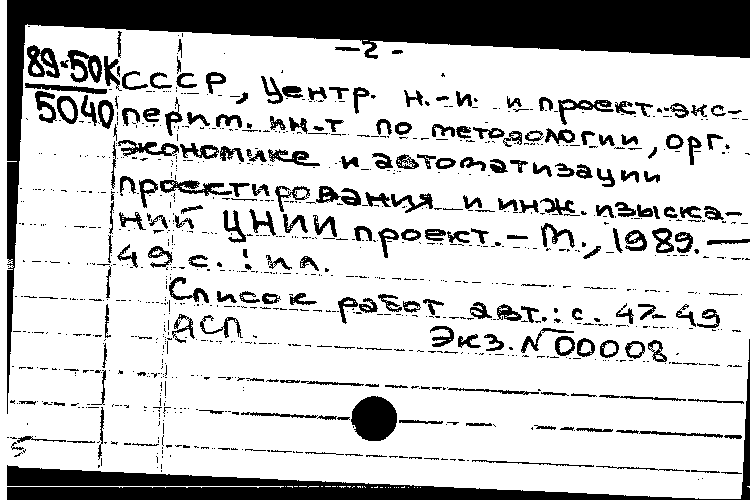 —2-
89-50К
5040
СССР, Центр. н.-и. и проект.-экс-
перим. ин-т по методологии, орг.
экономике и автоматизации
проектирования и инж. изыска-
ний ЦНИИ проект. – М., 1989. —
49 с. : ил.
Список работ авт.: с. 47-49
АСП. Экз. N 00008.
5